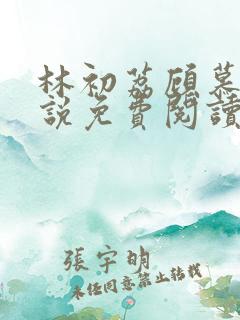 林初荔顾慕
說免費閱讀
張宇明
未经同意禁止转载